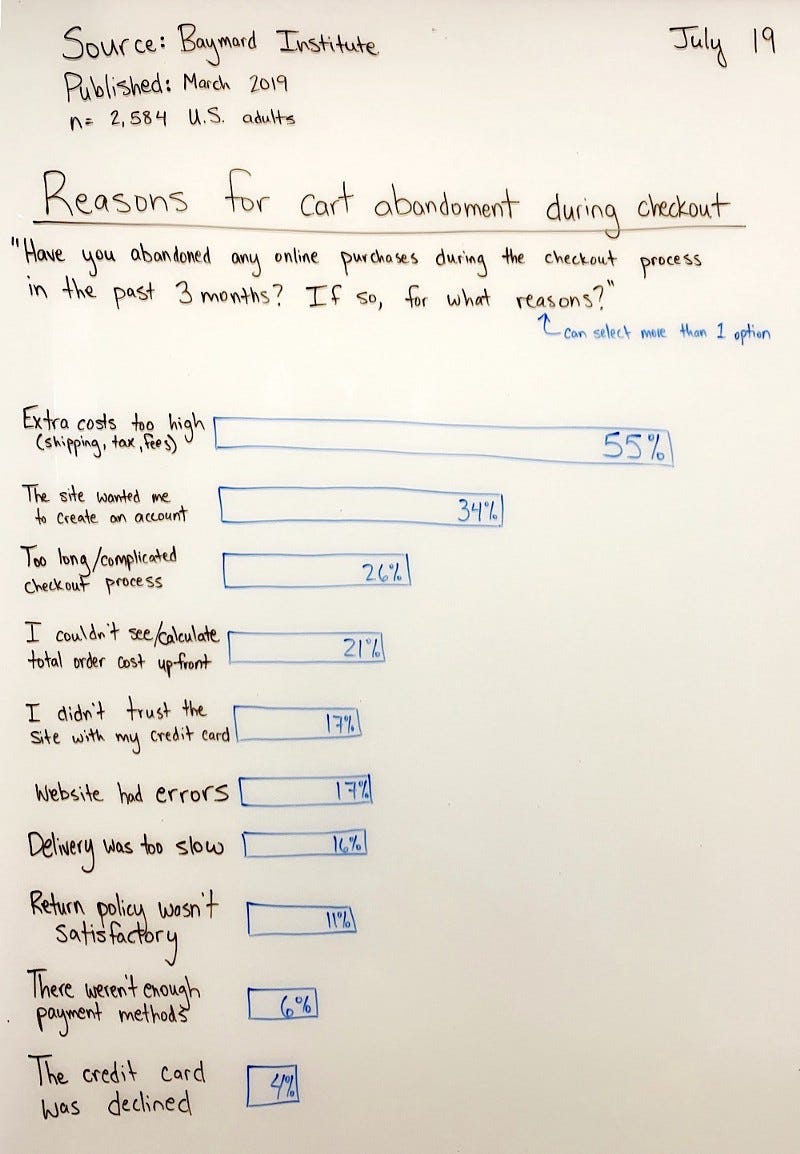 Source: Baymard Institute
July 19
Published: March 2019
n= 2,584 U.S. adults
Reasons for cart abandoment during checkout
"Have you abandoned any online purchases during the checkout process
in the past 3 months? If so, for what reasons?"
can select more than 1 option
Extra costs too high
(shipping, tax, fees)
55%
The site wanted me
to create an account
34%
Too long/complicated
checkout process
26%
I couldn't see/calculate
total order cost up-front
21%
I didn't trust the
site with my credit card
17%
Website had errors
17%
Delivery was too slow
16%
Return policy wasn't
satisfactory
11%
There weren't enough
payment methods
6%
The credit card
was declined
4%